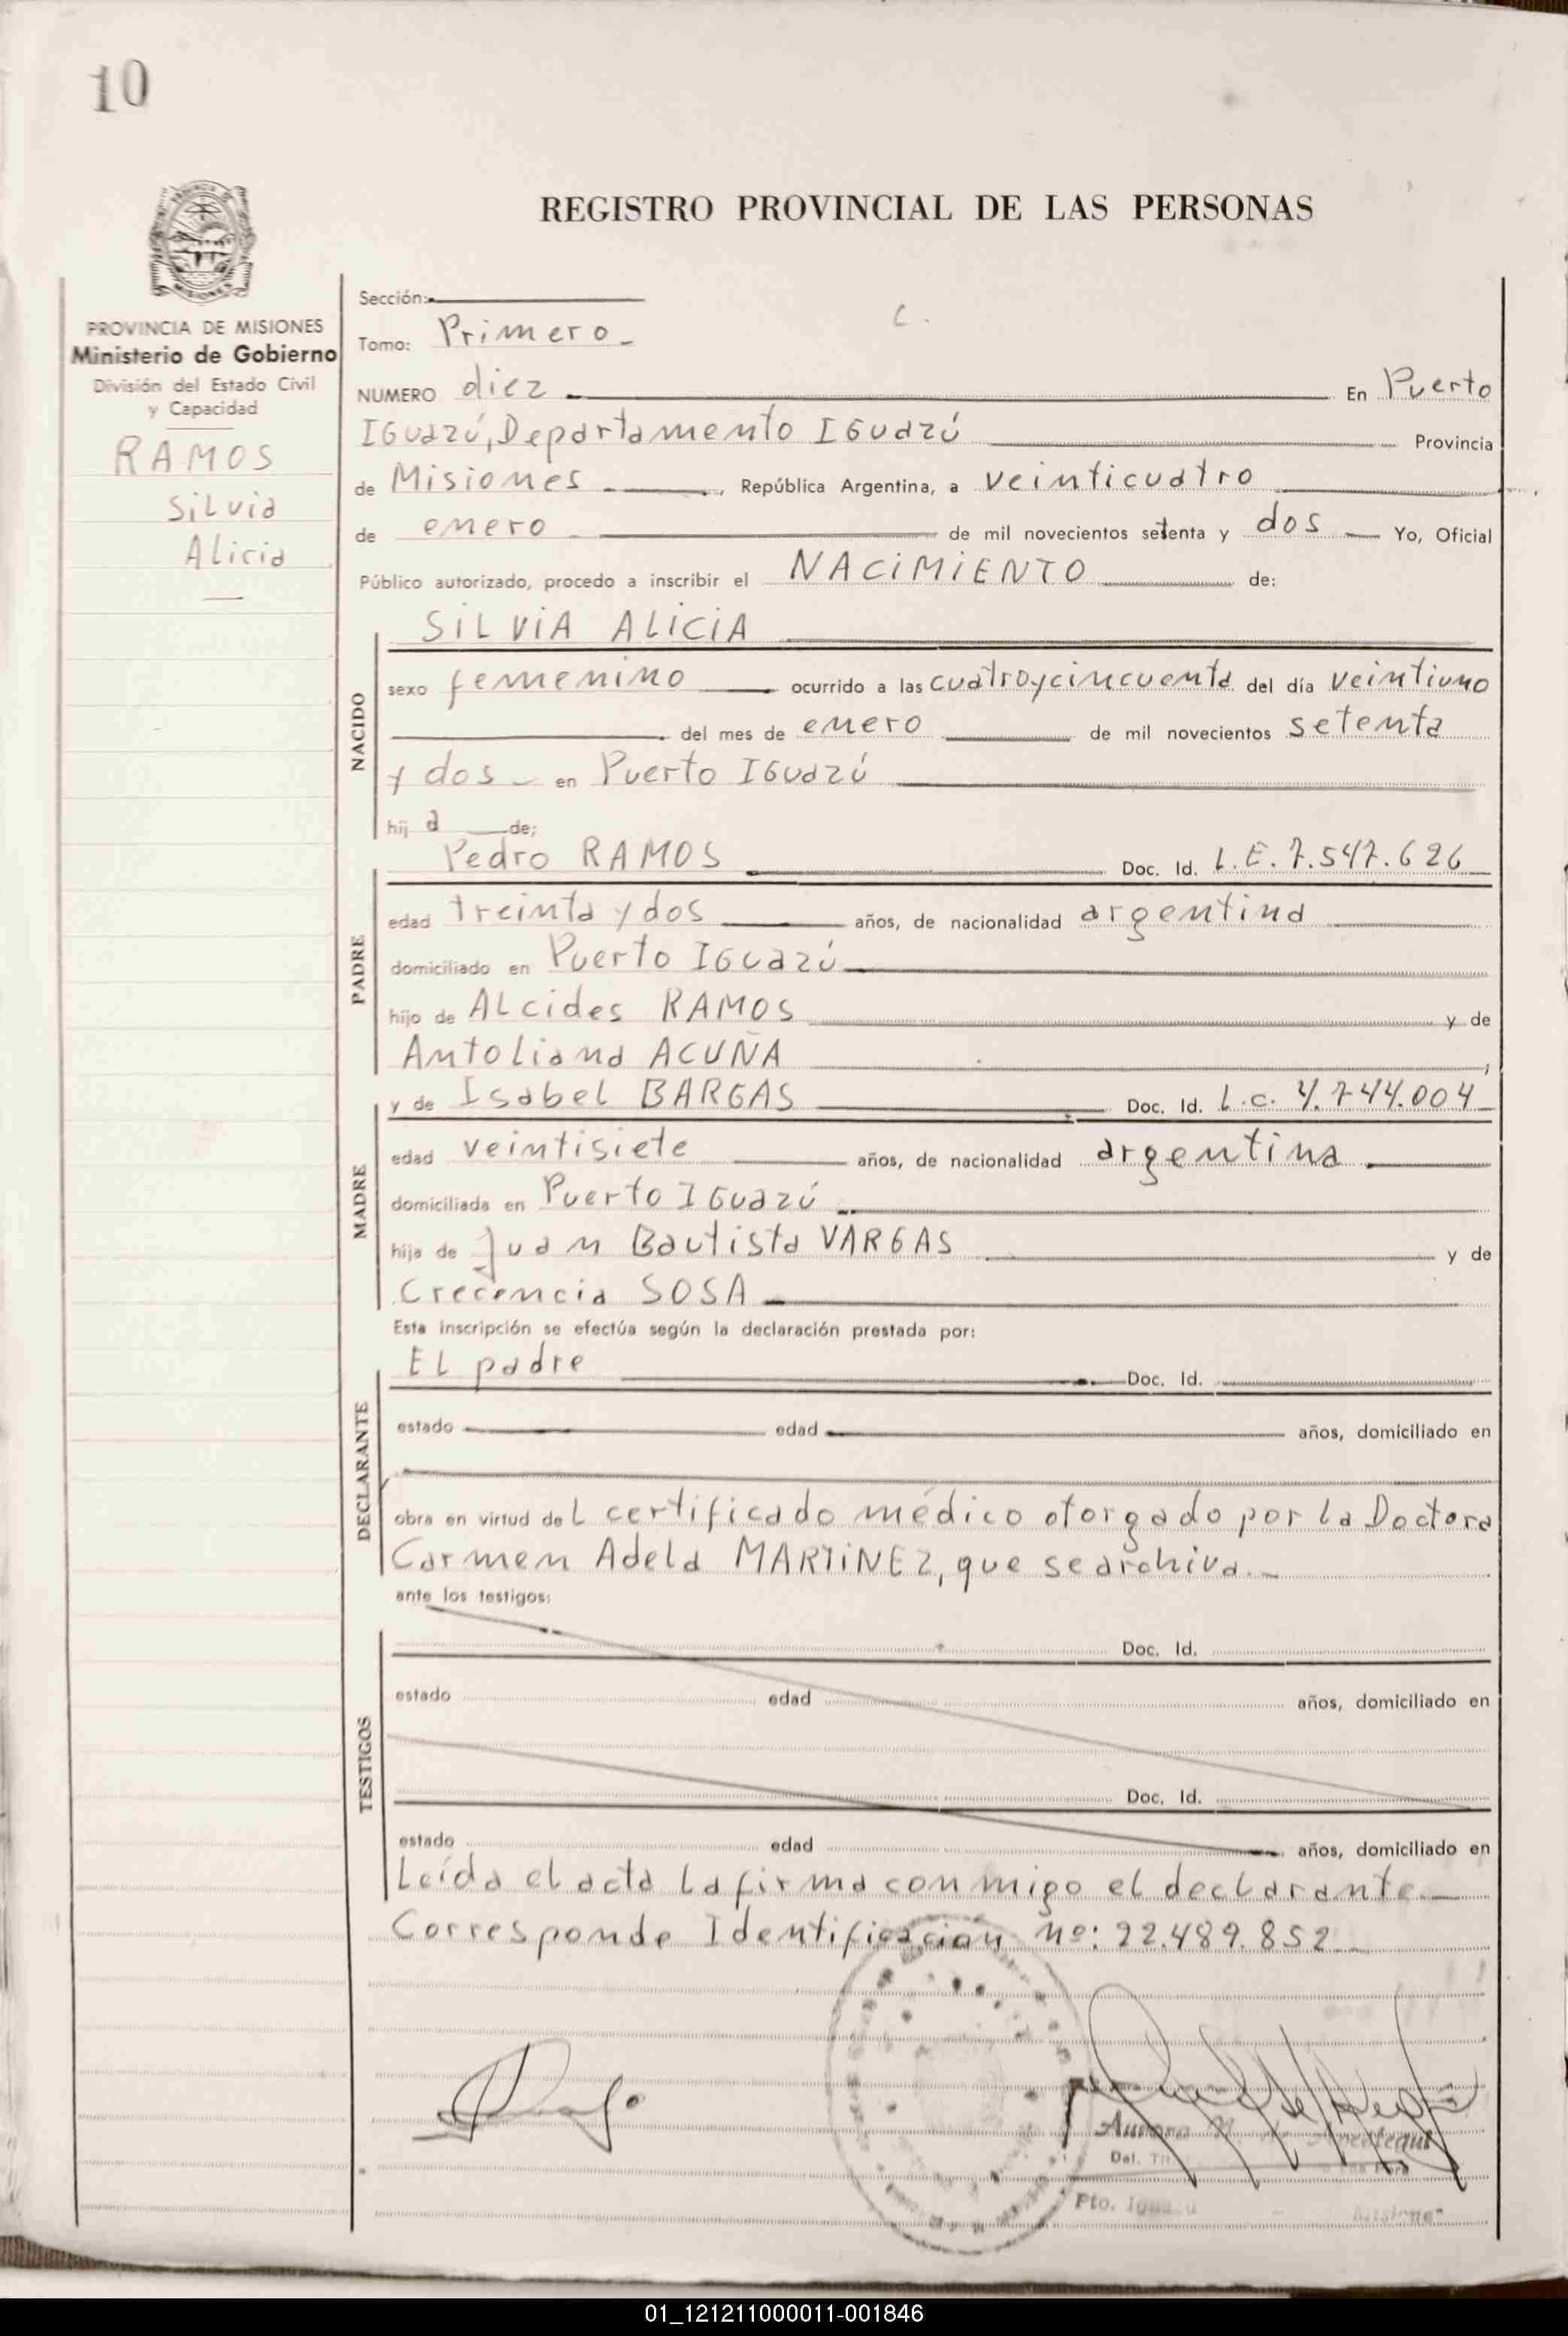 10
REGISTRO PROVINCIAL DE LAS PERSONAS
PROVINCIA DE MISIONES
Ministerio de Gobierno
División del Estado Civil
y Capacidad
RAMOS
Silvia
Alicia
Sección:
Tomo: Primero
NUMERO diez En Puerto
Iguazú, Departamento Iguazú Provincia
de Misiones, República Argentina, a veinticuatro
de enero de mil novecientos setenta y dos Yo, Oficial
Público autorizado, procedo a inscribir el NACIMIENTO de:
NACIDO
SILVIA ALICIA
sexo femenino ocurrido a las cuatro y cincuenta del día veintiuno
del mes de enero de mil novecientos setenta
y dos en Puerto Iguazú
hij a de;
PADRE
Pedro RAMOS Doc. Id. L.E. 7.547.626
edad treinta y dos años, de nacionalidad argentina
domiciliado en Puerto Iguazú
hijo de Alcides RAMOS y de
Antoliana ACUÑA
MADRE
y de Isabel BARGAS Doc. Id. L.C. 4.744.004
edad veintisiete años, de nacionalidad argentina
domiciliada en Puerto Iguazú
hija de Juan Bautista VARGAS y de
Crecencia SOSA
Esta inscripción se efectúa según la declaración prestada por:
DECLARANTE
El padre Doc. Id.
estado edad años, domiciliado en
obra en virtud del certificado médico otorgado por la Doctora
Carmen Adela MARTINEZ, que se archiva.
ante los testigos:
TESTIGOS
Doc. Id.
estado edad años, domiciliado en
Doc. Id.
estado edad años, domiciliado en
Leída el acta la firma conmigo el declarante.
Corresponde Identificación Nº: 22.489.852
Aurora
Del.
Pto.
01_121211000011-001846